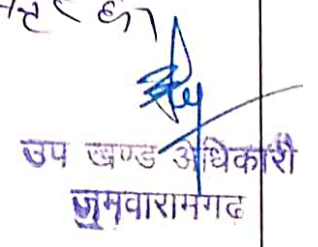 उप खण्ड अधिकारी
जमवारामगढ